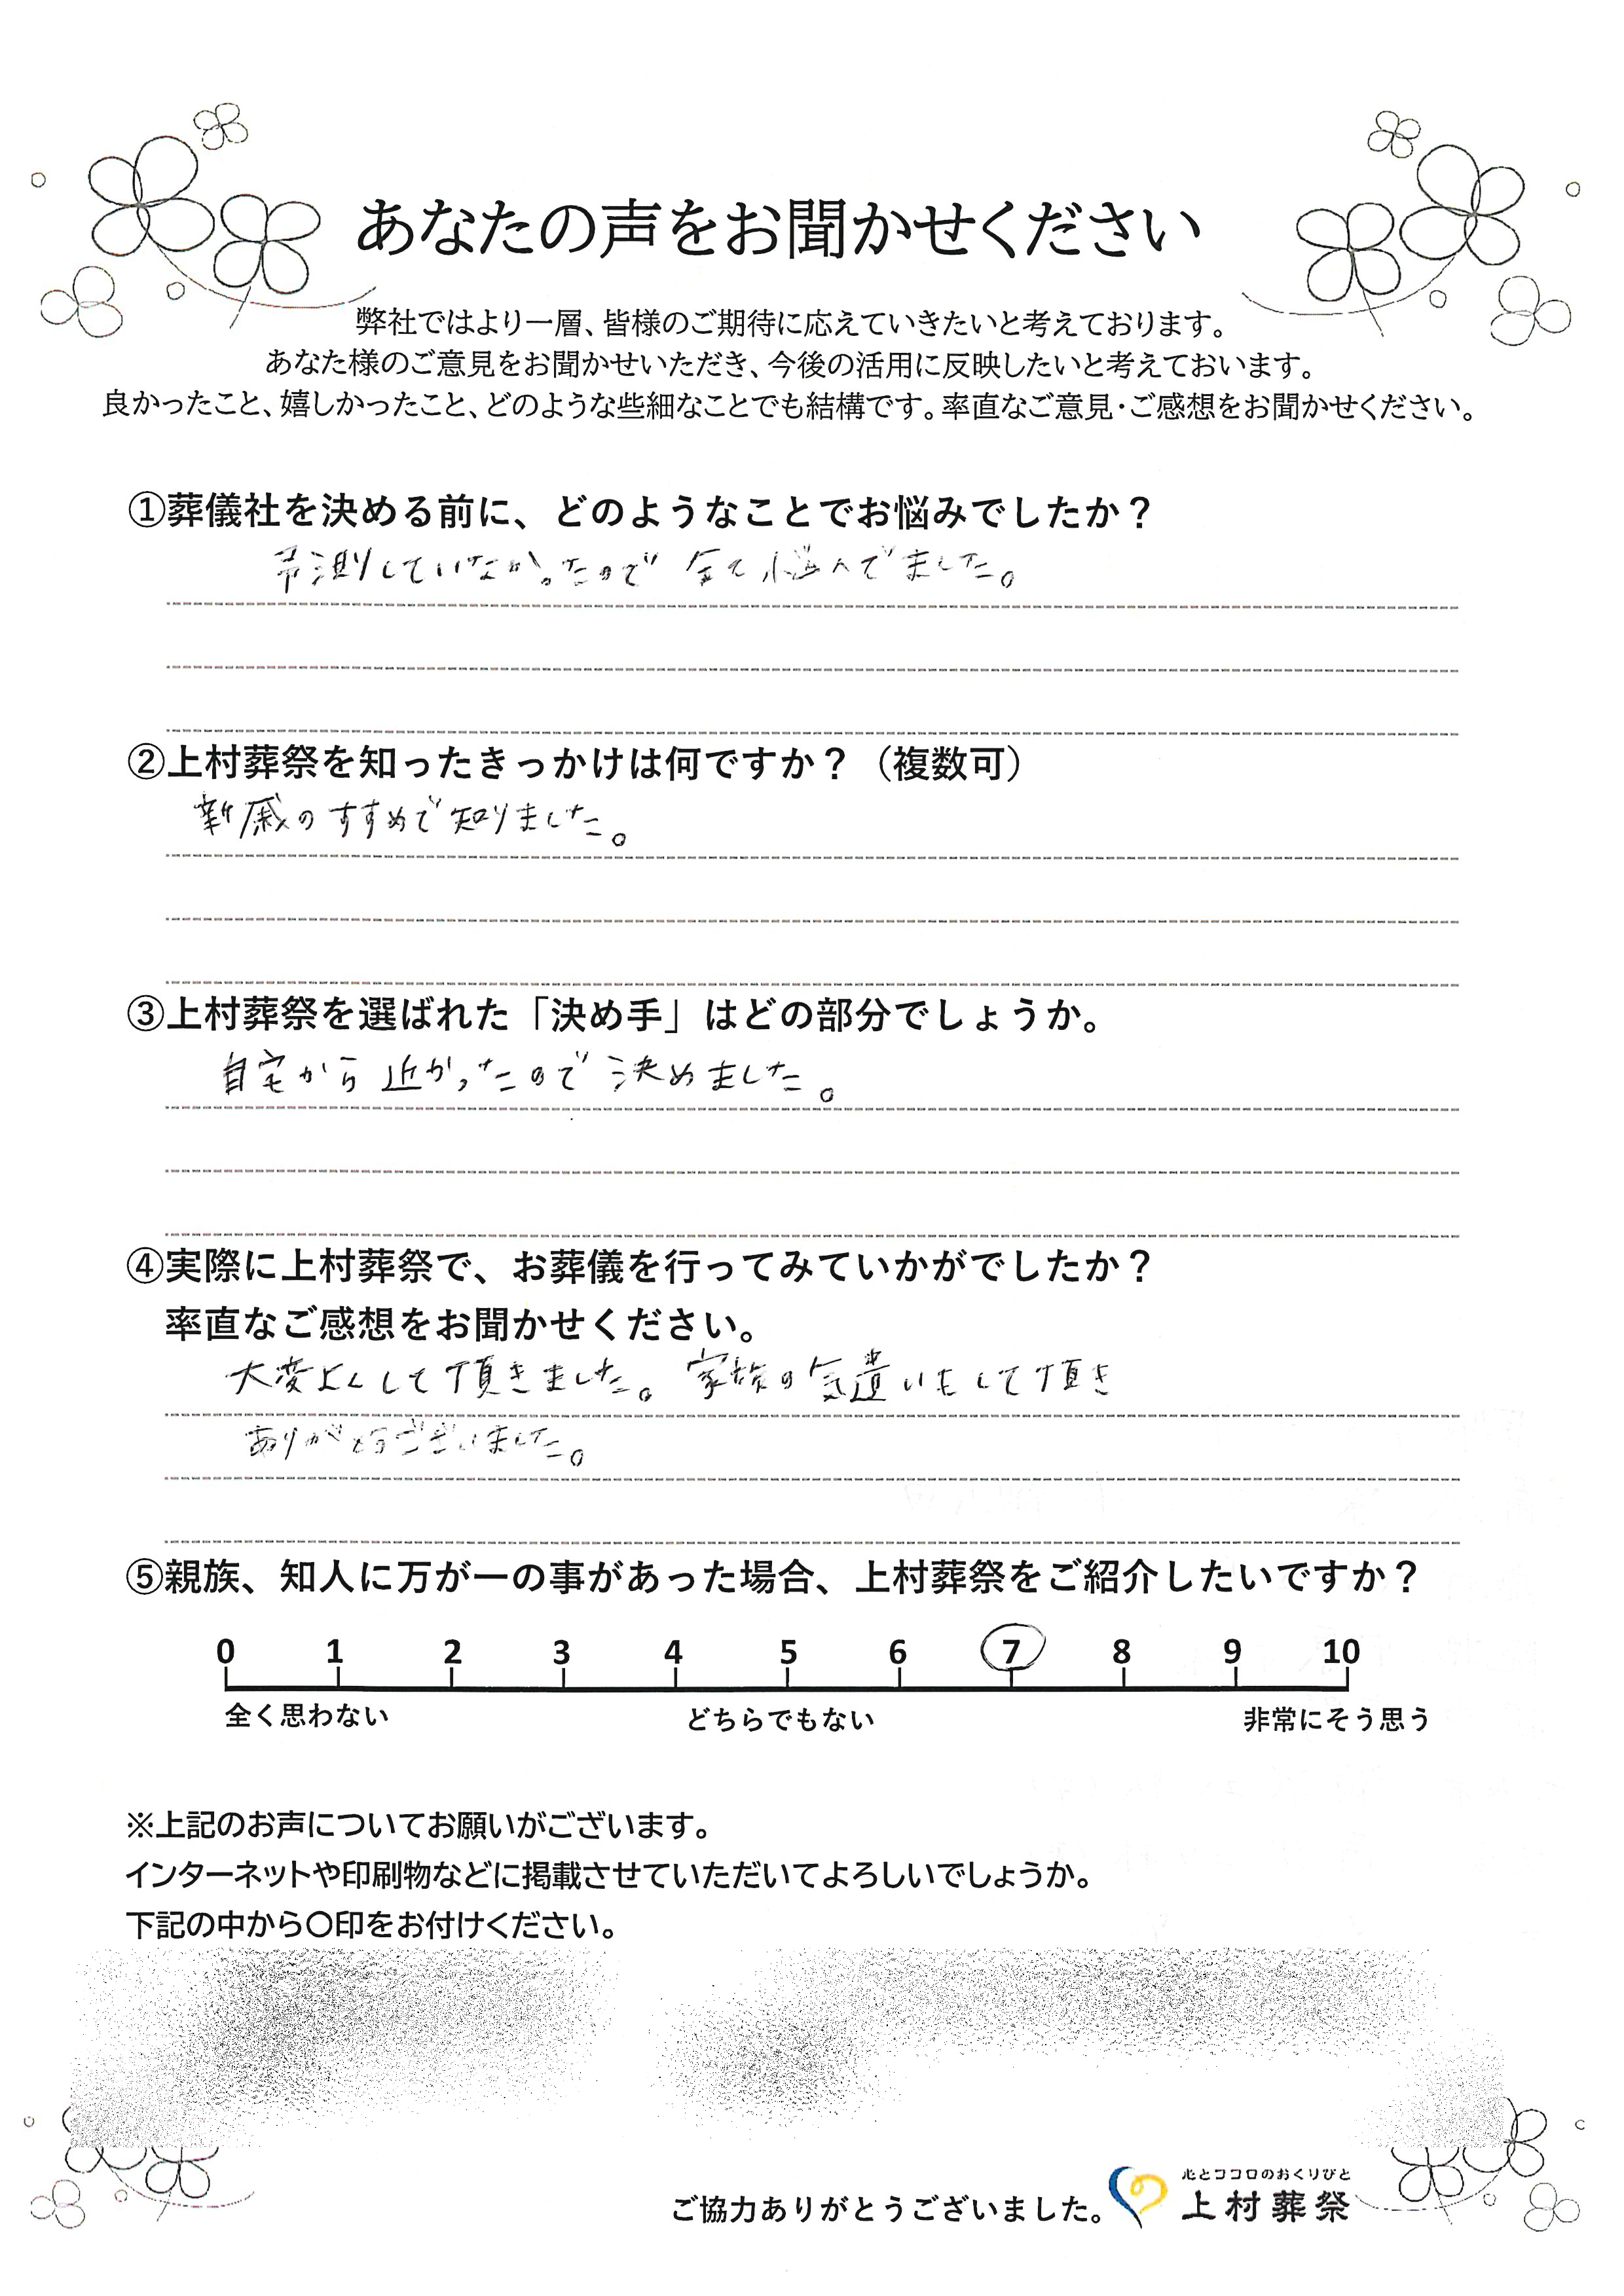 あなたの声をお聞かせください
弊社ではより一層、皆様のご期待に応えていきたいと考えております。
あなた様のご意見をお聞かせいただき、今後の活用に反映したいと考えておいます。
良かったこと、嬉しかったこと、どのような些細なことでも結構です。率直なご意見・ご感想をお聞かせください。
①葬儀社を決める前に、どのようなことでお悩みでしたか？
予測していなかったので 全て悩んでました。
②上村葬祭を知ったきっかけは何ですか？（複数可）
親戚のすすめで知りました。
③上村葬祭を選ばれた「決め手」はどの部分でしょうか。
自宅から近かったので決めました。
④実際に上村葬祭で、お葬儀を行ってみていかがでしたか？
率直なご感想をお聞かせください。
大変よくして頂きました。家族の気遣いもして頂き
ありがとうございました。
⑤親族、知人に万が一の事があった場合、上村葬祭をご紹介したいですか？
0 1 2 3 4 5 6 7 8 9 10
全く思わない どちらでもない 非常にそう思う
※上記のお声についてお願いがございます。
インターネットや印刷物などに掲載させていただいてよろしいでしょうか。
下記の中から〇印をお付けください。
ご協力ありがとうございました。
心とココロのおくりびと
上村葬祭